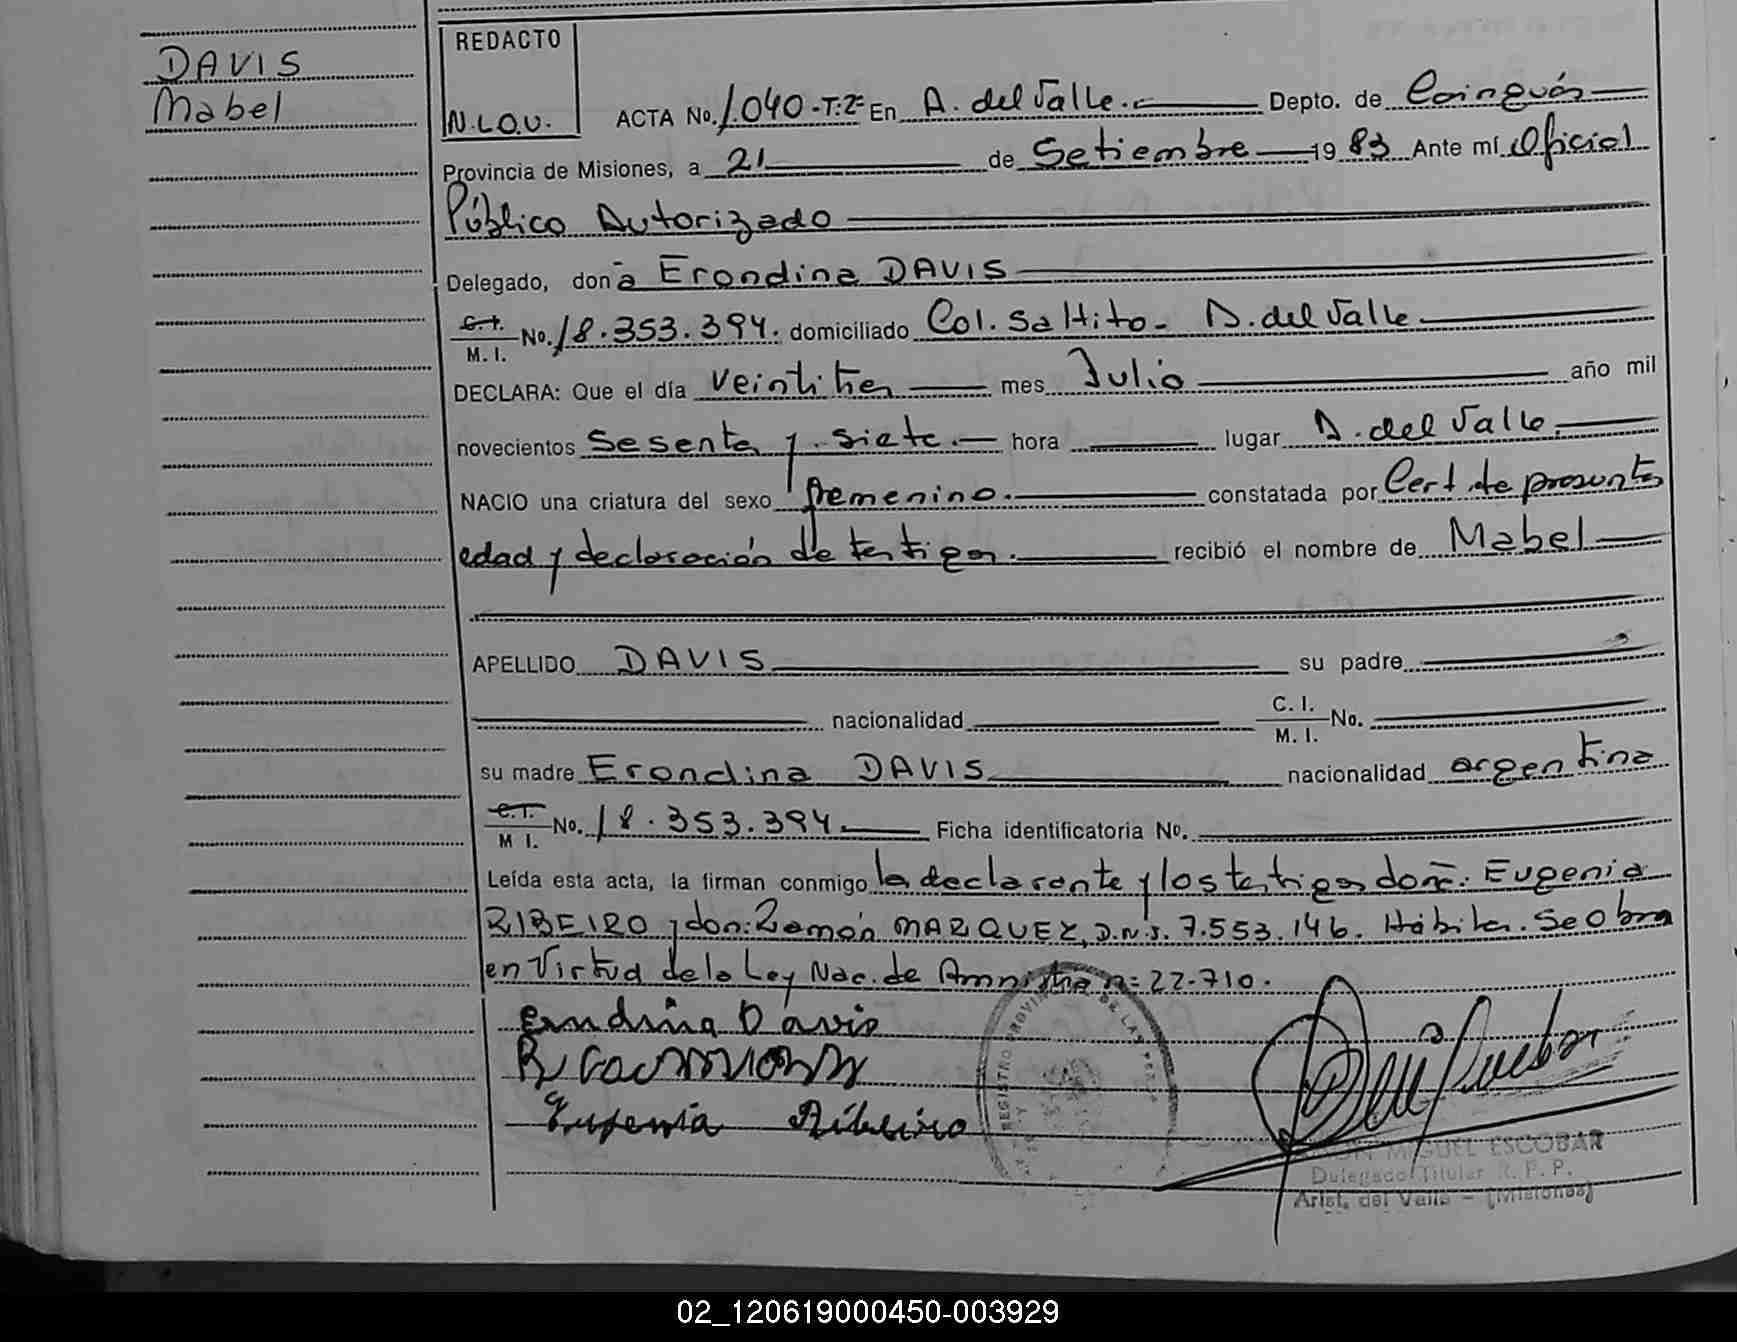 DAVIS
Mabel
REDACTO
N.L.O.U.
ACTA No. 1.040-T:2º En A. del Valle.- Depto. de Cainguás
Provincia de Misiones, a 21 de Setiembre 1983 Ante mí Oficial
Público Autorizado
Delegado, don a Erondina DAVIS
C.I. M. I. No. 18.353.394. domiciliado Col. Saltito - A. del Valle
DECLARA: Que el día veintitres mes Julio año mil
novecientos sesenta y siete.- hora lugar A. del Valle.
NACIO una criatura del sexo femenino. constatada por Cert de presunta
edad y declaración de testigos. recibió el nombre de Mabel
APELLIDO DAVIS su padre
nacionalidad C. I. M. I. No.
su madre Erondina DAVIS nacionalidad argentina
C.I. M I. No. 18.353.394. Ficha identificatoria No.
Leída esta acta, la firman conmigo la declarante y los testigos doña: Eugenia
RIBEIRO y don: Ramón MARQUEZ, D.N.I. 7.553.146. Hábiles. Se Obra
en Virtud de la Ley Nac. de Amnistia nº 22.710.
Erndina Davis
Eugenia Ribeiro
REGISTRO PROVINCIAL DE LAS PERS
MIGUEL ESCOBAR
Delegado Titular R. P. P.
Arist. del Valle - (Misiones)
02_120619000450-003929